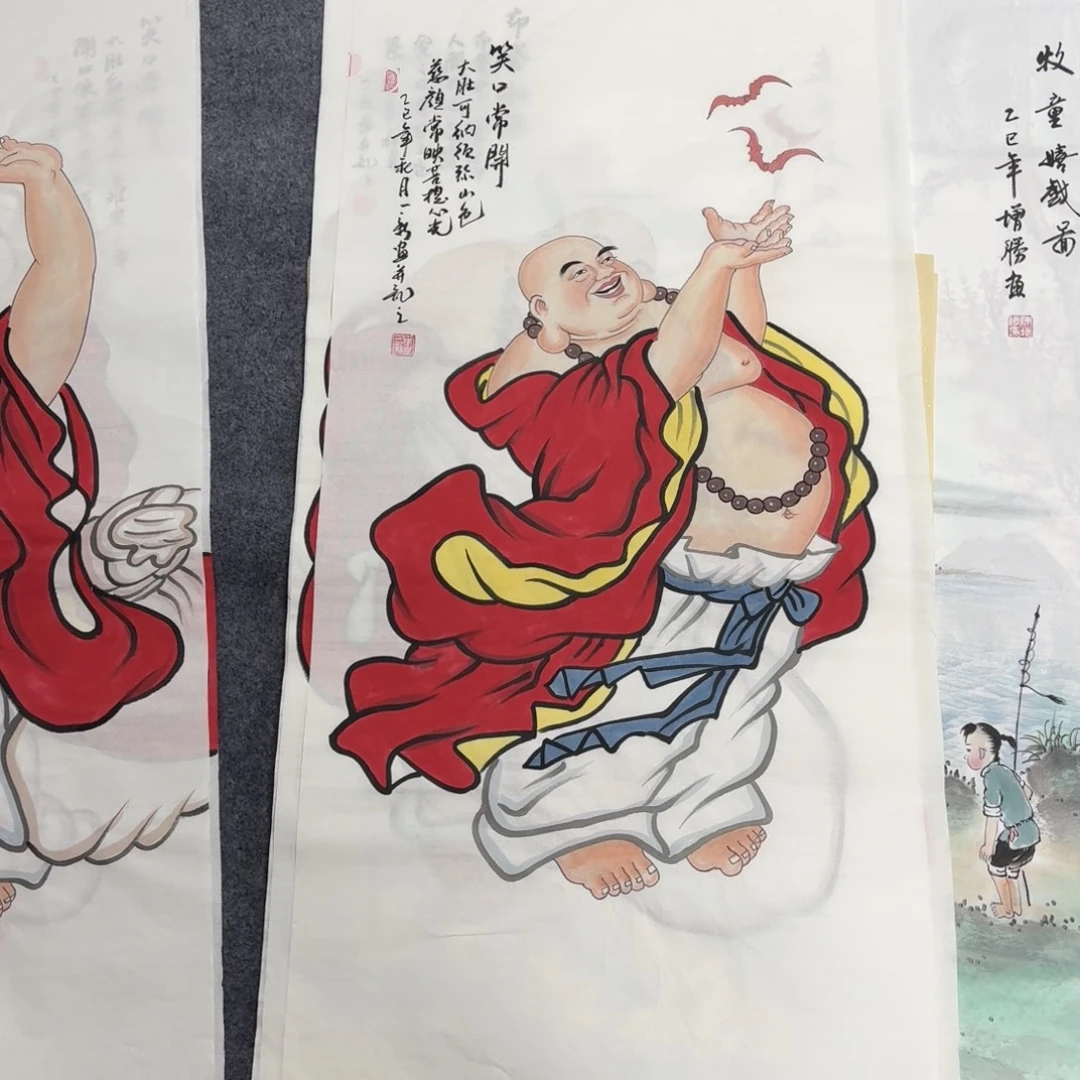 笑口常開
大肚可納須弥山色
慈顔常映菩提心光
乙巳年秋月一新画并記之
牧童嬉戲圖
乙巳年增勝画